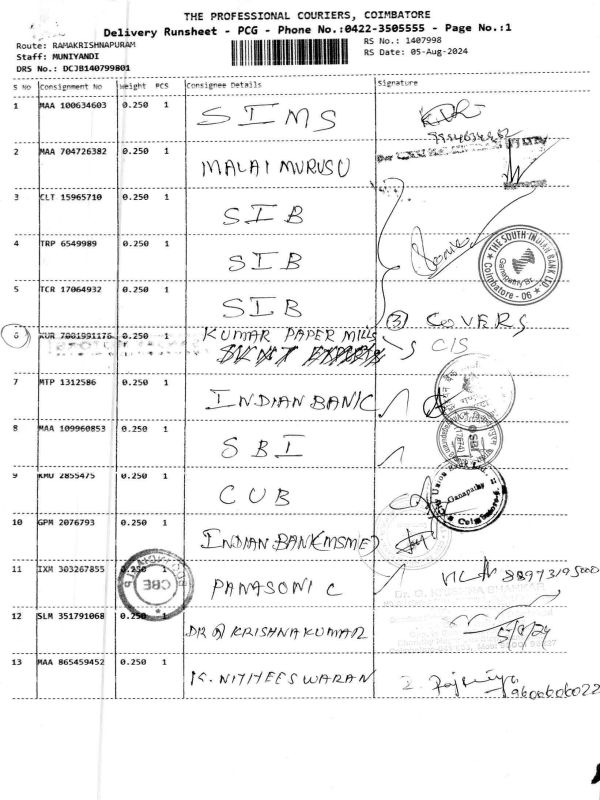 THE PROFESSIONAL COURIERS, COIMBATORE
Delivery Runsheet - PCG - Phone No.:0422-3505555 - Page No.:1
Route: RAMAKRISHNAPURAM
RS No.: 1407998
Staff: MUNIYANDI
RS Date: 05-Aug-2024
DRS No.: DCJB140799801
S No Consignment No Weight PCS Consignee Details Signature
1 MAA 100634603 0.250 1 SIMS
2 MAA 704726382 0.250 1 MALAI MURUSU
3 CLT 15965710 0.250 1 SIB
4 TRP 6549989 0.250 1 SIB
THE SOUTH INDIAN BANK LTD.
Ganapathy
Coimbatore - 06
5 TCR 17064932 0.250 1 SIB
③ COVERS
6 KUR 7001991176 0.250 1 KUMAR PAPER MILLS
CIS
7 MTP 1312586 0.250 1 INDIAN BANK
8 MAA 109960853 0.250 1 SBI
SBI
9 KMU 2855475 0.250 1 CUB
Ganapathy
10 GPM 2076793 0.250 1 INDIAN BANK (MSME)
11 IXM 303267855 0.250 1 PANASONIC
CBE
12 SLM 351791068 0.250 1 DR G KRISHNAKUMAR
5/8/24
13 MAA 865459452 0.250 1 K. NITHEESWARAN
9600606022